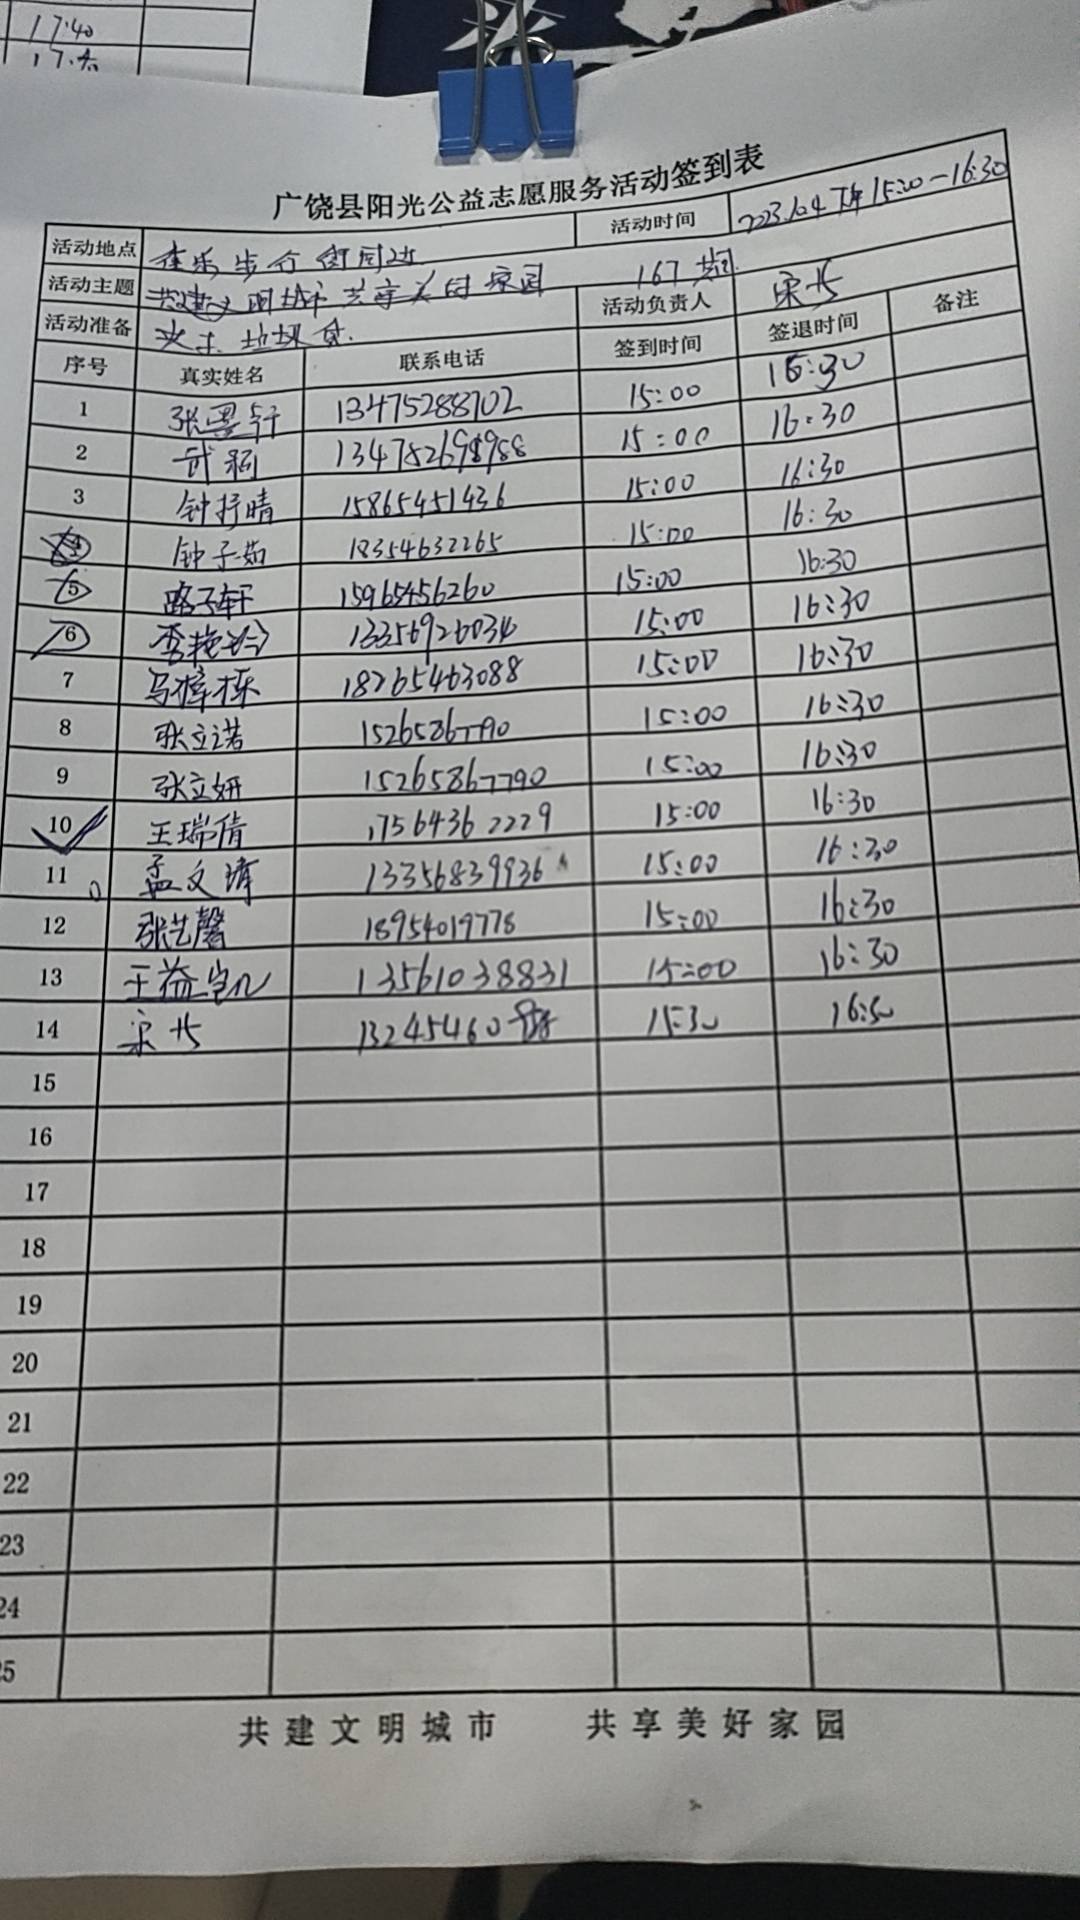 17:40
广饶县阳光公益志愿服务活动签到表
活动地点 步行街周边 活动时间 2023.10.4 下午 15:00-16:30
活动主题 共建文明城市 共享美好家园 167期
活动准备 夹子 垃圾袋. 活动负责人
序号 真实姓名 联系电话 签到时间 签退时间 备注
1 张墨轩 13475288702 15:00 16:30
2 武 15:00 16:30
3 钟抒晴 15865451436 15:00 16:30
4 钟子茹 18354632265 15:00 16:30
5 路子轩 15965456260 15:00 16:30
6 李艳 15:00 16:30
7 马梓栋 18765463088 15:00 16:30
8 张立诺 15265867790 15:00 16:30
9 张立妍 15265867790 15:00 16:30
10 王瑞倩 17564362229 15:00 16:30
11 孟文 13356839936 15:00 16:30
12 张艺馨 18954019778 15:00 16:30
13 王益 13561038831 15:00 16:30
14 宋 13245460 15:30 16:50
15
16
17
18
19
20
21
22
23
24
25
共建文明城市 共享美好家园